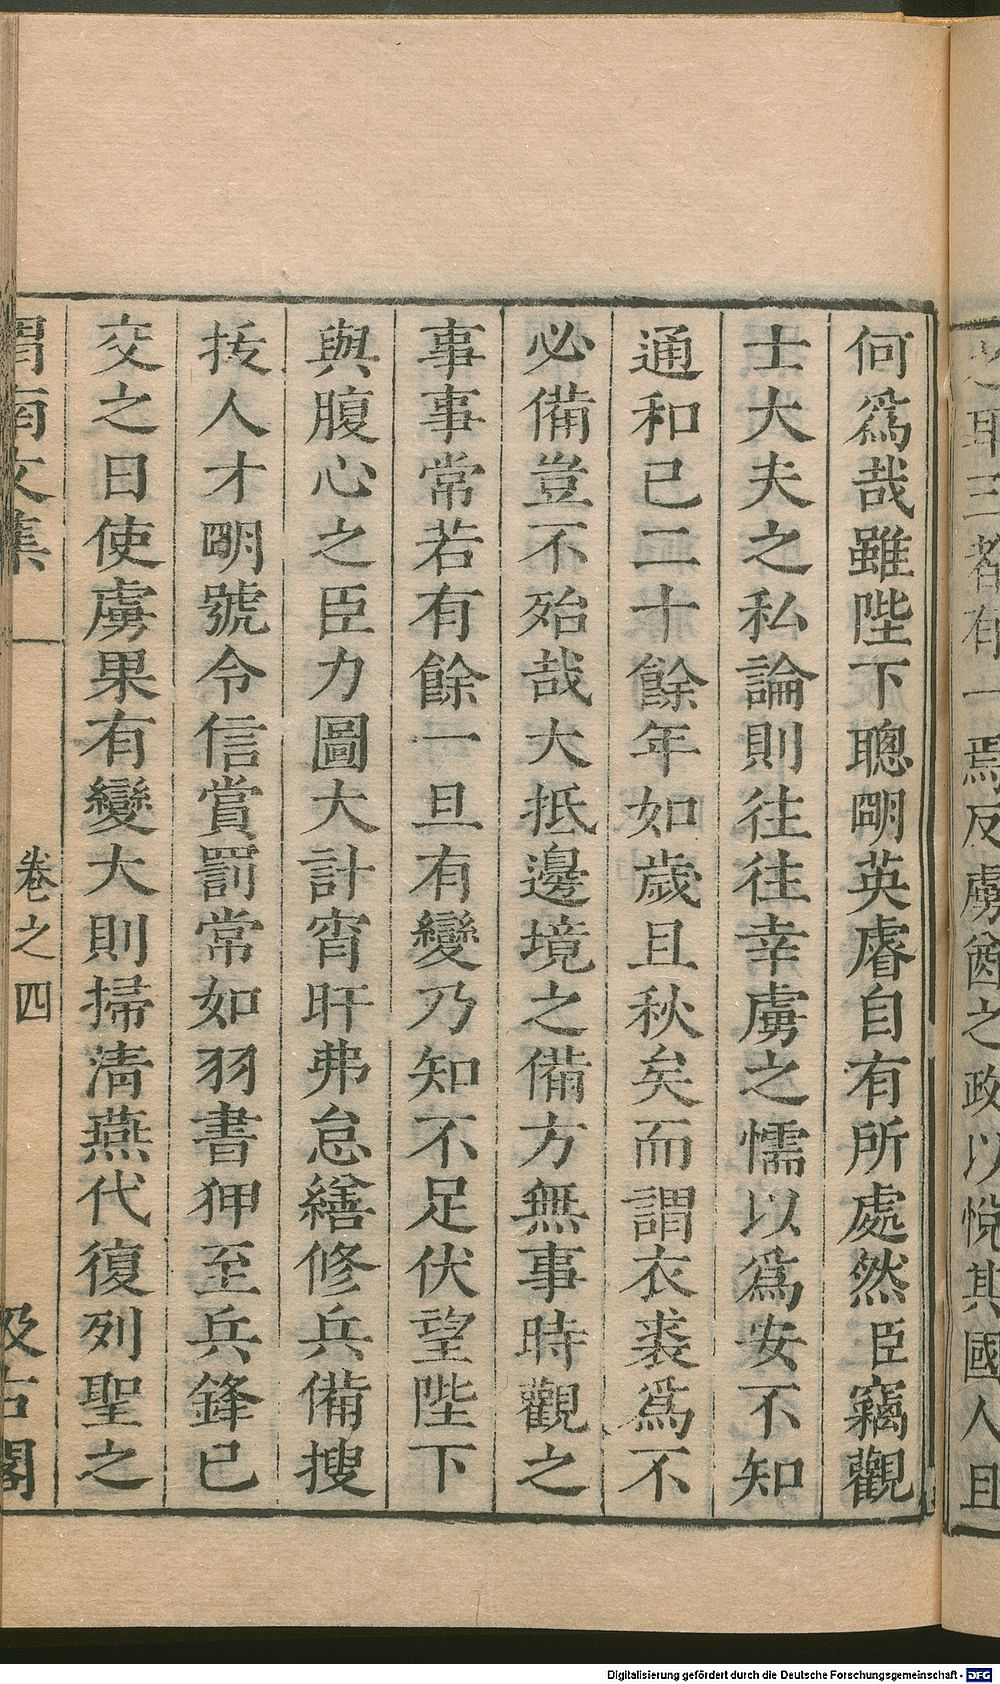 之耶三者有一焉反虜酋之政以悅其國人且
何爲哉雖陛下聰明英睿自有所處然臣竊觀
士大夫之私論則往往幸虜之懦以爲安不知
通和已二十餘年如歲且秋矣而謂衣裘爲不
必備豈不殆哉大抵邊境之備方無事時觀之
事事常若有餘一旦有變乃知不足伏望陛下
與腹心之臣力圖大計宵旰弗怠繕修兵備搜
拔人才明號令信賞罰常如羽書狎至兵鋒已
交之日使虜果有變大則掃清燕代復列聖之
渭南文集 卷之四 汲古閣
Digitalisierung gefördert durch die Deutsche Forschungsgemeinschaft - DFG